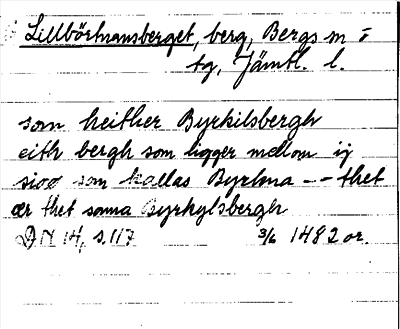 Lillbörtnansberget, berg, Bergs sn o
tg, Jämtl. l.
som heither Byrkilsbergh
eith bergh som ligger mellom ij
sioo som kallas Byrtna -- thet
ær thet sama Byrkylsbergh
DN 14, s. 117 3/6 1482 or.